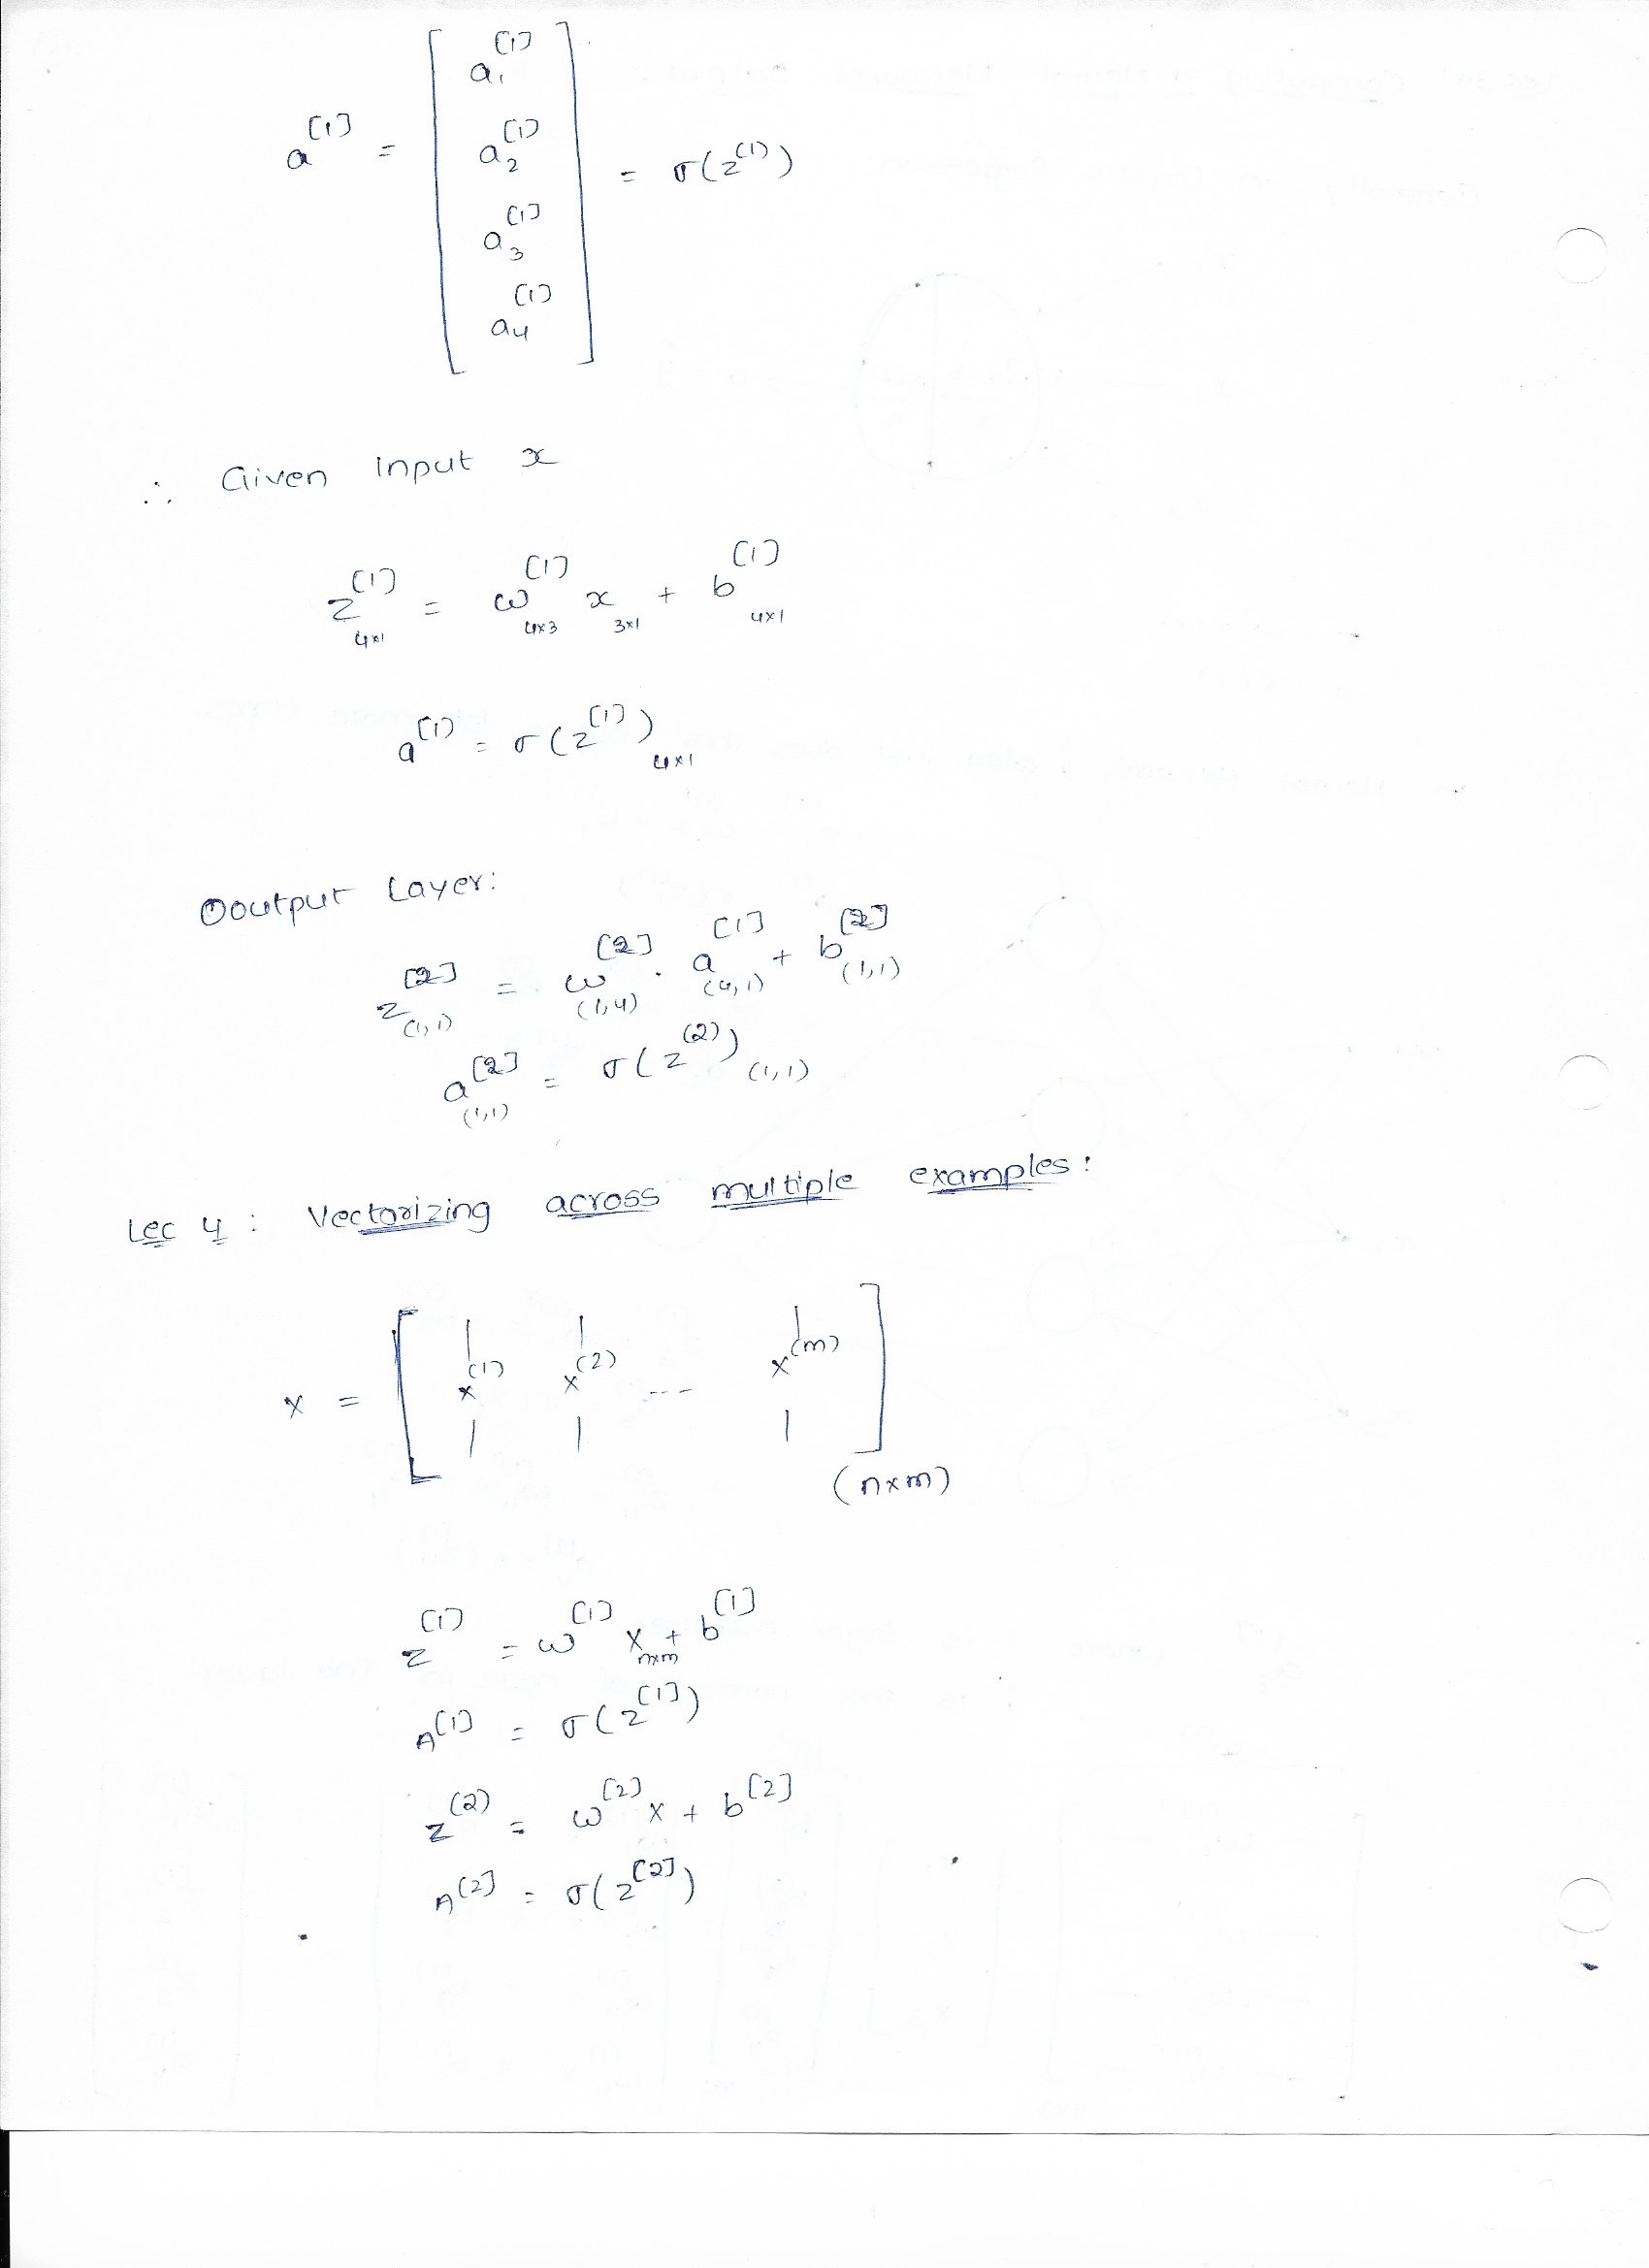 a^[1] = [ a_1^[1]
a_2^[1]
a_3^[1]
a_4^[1] ] = σ(z^(1))
∴ Given input x
z^[1]_{4×1} = ω^[1]_{4×3} x_{3×1} + b^[1]_{4×1}
a^[1] = σ(z^[1])_{4×1}
Ooutput Layer:
z^[2]_{(1,1)} = ω^[2]_{(1,4)} . a^[1]_{(4,1)} + b^[2]_{(1,1)}
a^[2]_{(1,1)} = σ(z^(2))_{(1,1)}
Lec 4 : Vectorizing across multiple examples:
X = [ | | |
x^(1) x^(2) --- x^(m)
| | | ]
(n×m)
z^[1] = ω^[1] X_{n×m} + b^[1]
A^[1] = σ(z^[1])
z^(2) = ω^[2] X + b^[2]
A^[2] = σ(z^[2])